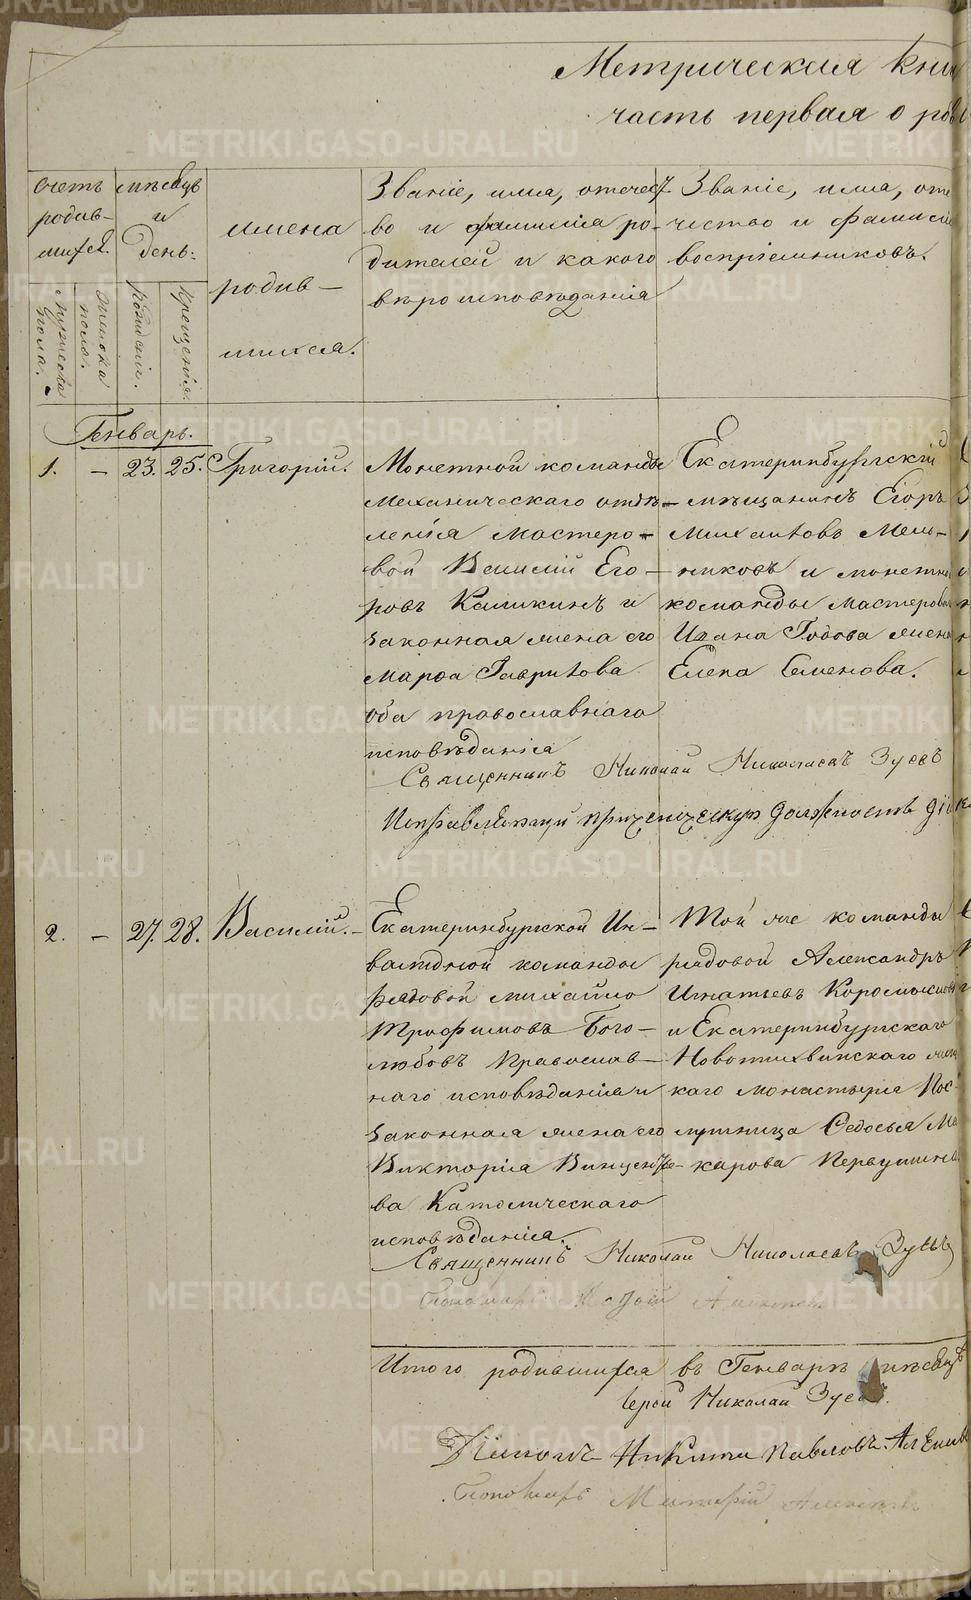 Метрическая кни
часть первая о ро
Счетъ
родив-
шихся.
мѣсяцъ
и
день:
имена
родив-
шихся.
Званіе, имя, отечест-
во и фамилія ро-
дителей и какого
вѣроисповѣданія
Званіе, имя, оте
чество и фамилія
воспріемниковъ.
мужеска
пола.
женска
пола.
рожденія.
крещенія.
Генварь.
1. - 23. 25. Григорій.
Монетной команды
механическаго отдѣ-
ленія мастеро-
вой Василій Его-
ровъ Каликинъ и
законная жена его
Марфа Гаврилова
оба православнаго
исповѣданія
Екатеринбургскій
мѣщанинъ Егоръ
Михаиловъ Мель-
никовъ и монетн
команды мастероваго
Ивана Годова жена
Елена Семенова.
Священникъ Николай Николаевъ Зуевъ
Исправляющій причетническую должность Дія
2. - 27. 28. Василій.
Екатеринбургской Ин-
валидной команды
рядовой Михайло
Трофимовъ Бого-
любовъ Православ-
наго исповѣданія и
законная жена его
Викторія Винценть-
ва Католическаго
исповѣданія.
Той же команды
рядовой Александръ
Игнатьевъ Коромысловъ
и Екатеринбургскаго
Новотихвинскаго
каго монастыря Пос-
лушница Федосья Ма
карова Первушина
Священникъ Николай Николаевъ Зуевъ
Пономарь
Итого родившихся въ Генварѣ мѣсяцѣ
Іерей Николай Зуевъ.
Діаконъ Никита Павловъ
Пономарь
METRIKI.GASO-URAL.RU